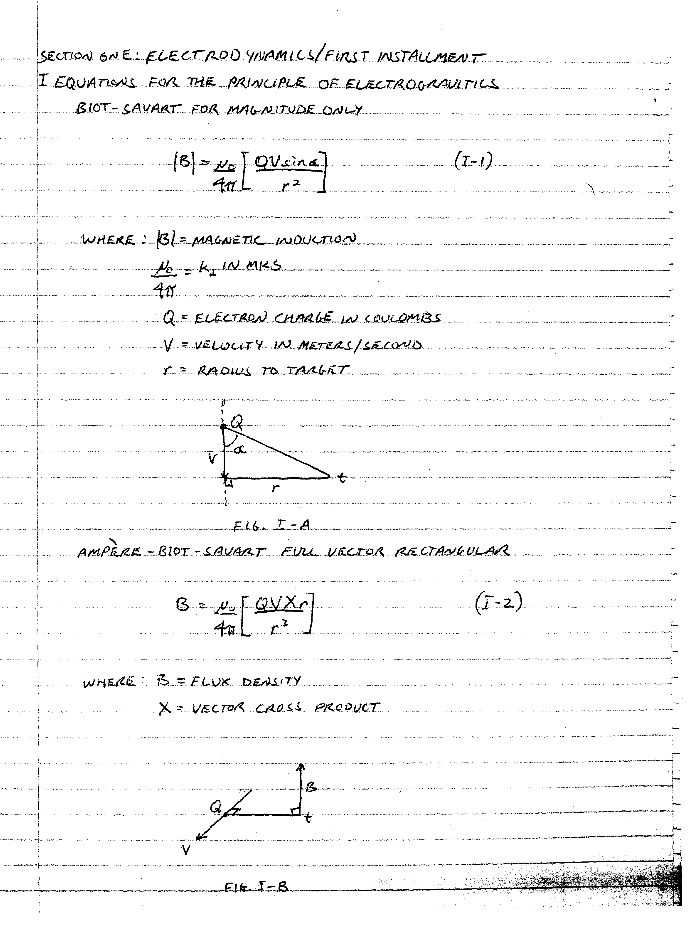 SECTION ONE: ELECTRODYNAMICS/FIRST INSTALLMENT
I EQUATIONS FOR THE PRINCIPLE OF ELECTROGRAVITICS
BIOT-SAVART FOR MAGNITUDE ONLY
|B| = μ₀/4π [QV sin α / r²] (I-1)
WHERE: |B| = MAGNETIC INDUCTION
μ₀/4π = k₁ IN MKS
Q = ELECTRON CHARGE IN COULOMBS
V = VELOCITY IN METERS/SECOND
r = RADIUS TO TARGET
Q
α
V
t
r
FIG. I-A
AMPÈRE-BIOT-SAVART FULL VECTOR RECTANGULAR
B = μ₀/4π [QV X r / r²] (I-2)
WHERE: B = FLUX DENSITY
X = VECTOR CROSS PRODUCT
B
Q
t
V
FIG I-B